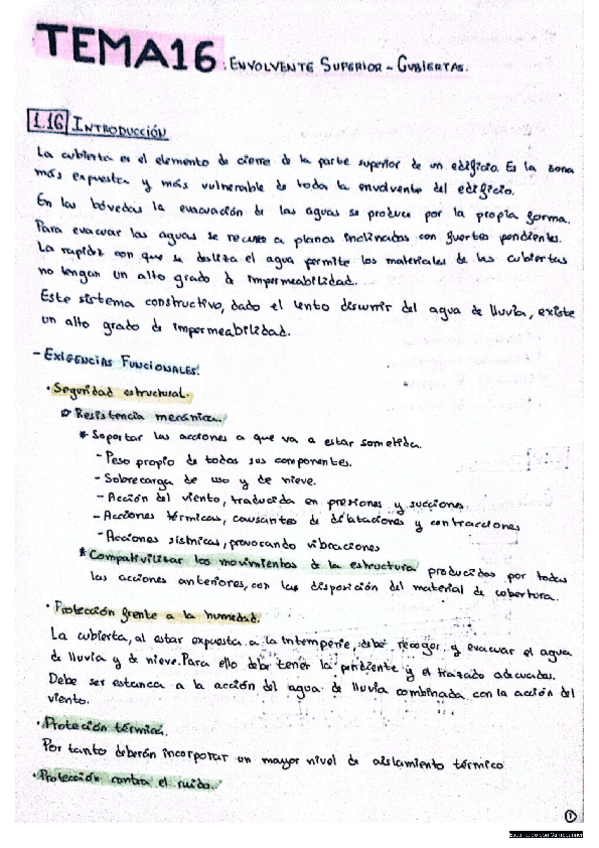 TEMA16. ENVOLVENTE SUPERIOR - CUBIERTAS.
1.16 INTRODUCCIÓN
La cubierta es el elemento de cierre de la parte superior de un edificio. Es la zona
más expuesta y más vulnerable de toda la envolvente del edificio.
En las bóvedas la evacuación de las aguas se produce por la propia forma.
Para evacuar las aguas se recurre a planos inclinados con fuertes pendientes.
La rapidez con que se desliza el agua permite los materiales de las cubiertas
no tengan un alto grado de impermeabilidad.
Este sistema constructivo, dado el lento discurrir del agua de lluvia, existe
un alto grado de impermeabilidad.
- EXIGENCIAS FUNCIONALES:
· Seguridad estructural.
Resistencia mecánica.
* Soportar las acciones a que va a estar sometida.
- Peso propio de todos sus componentes.
- Sobrecarga de uso y de nieve.
- Acción del viento, traducida en presiones y succiones
- Acciones térmicas, causantes de dilataciones y contracciones
- Acciones sísmicas, provocando vibraciones
* Compativilizar los movimientos de la estructura producidos por todas
las acciones anteriores, con las disposición del material de cobertura.
· Protección frente a la humedad.
La cubierta, al estar expuesta a la intemperie, debe recoger y evacuar el agua
de lluvia y de nieve. Para ello debe tener la pendiente y el trazado adecuados.
Debe ser estanca a la acción del agua de lluvia combinada con la acción del
viento.
· Protección térmica.
Por tanto deberán incorporar un mayor nivel de aislamiento térmico
· Protección contra el ruido.
1